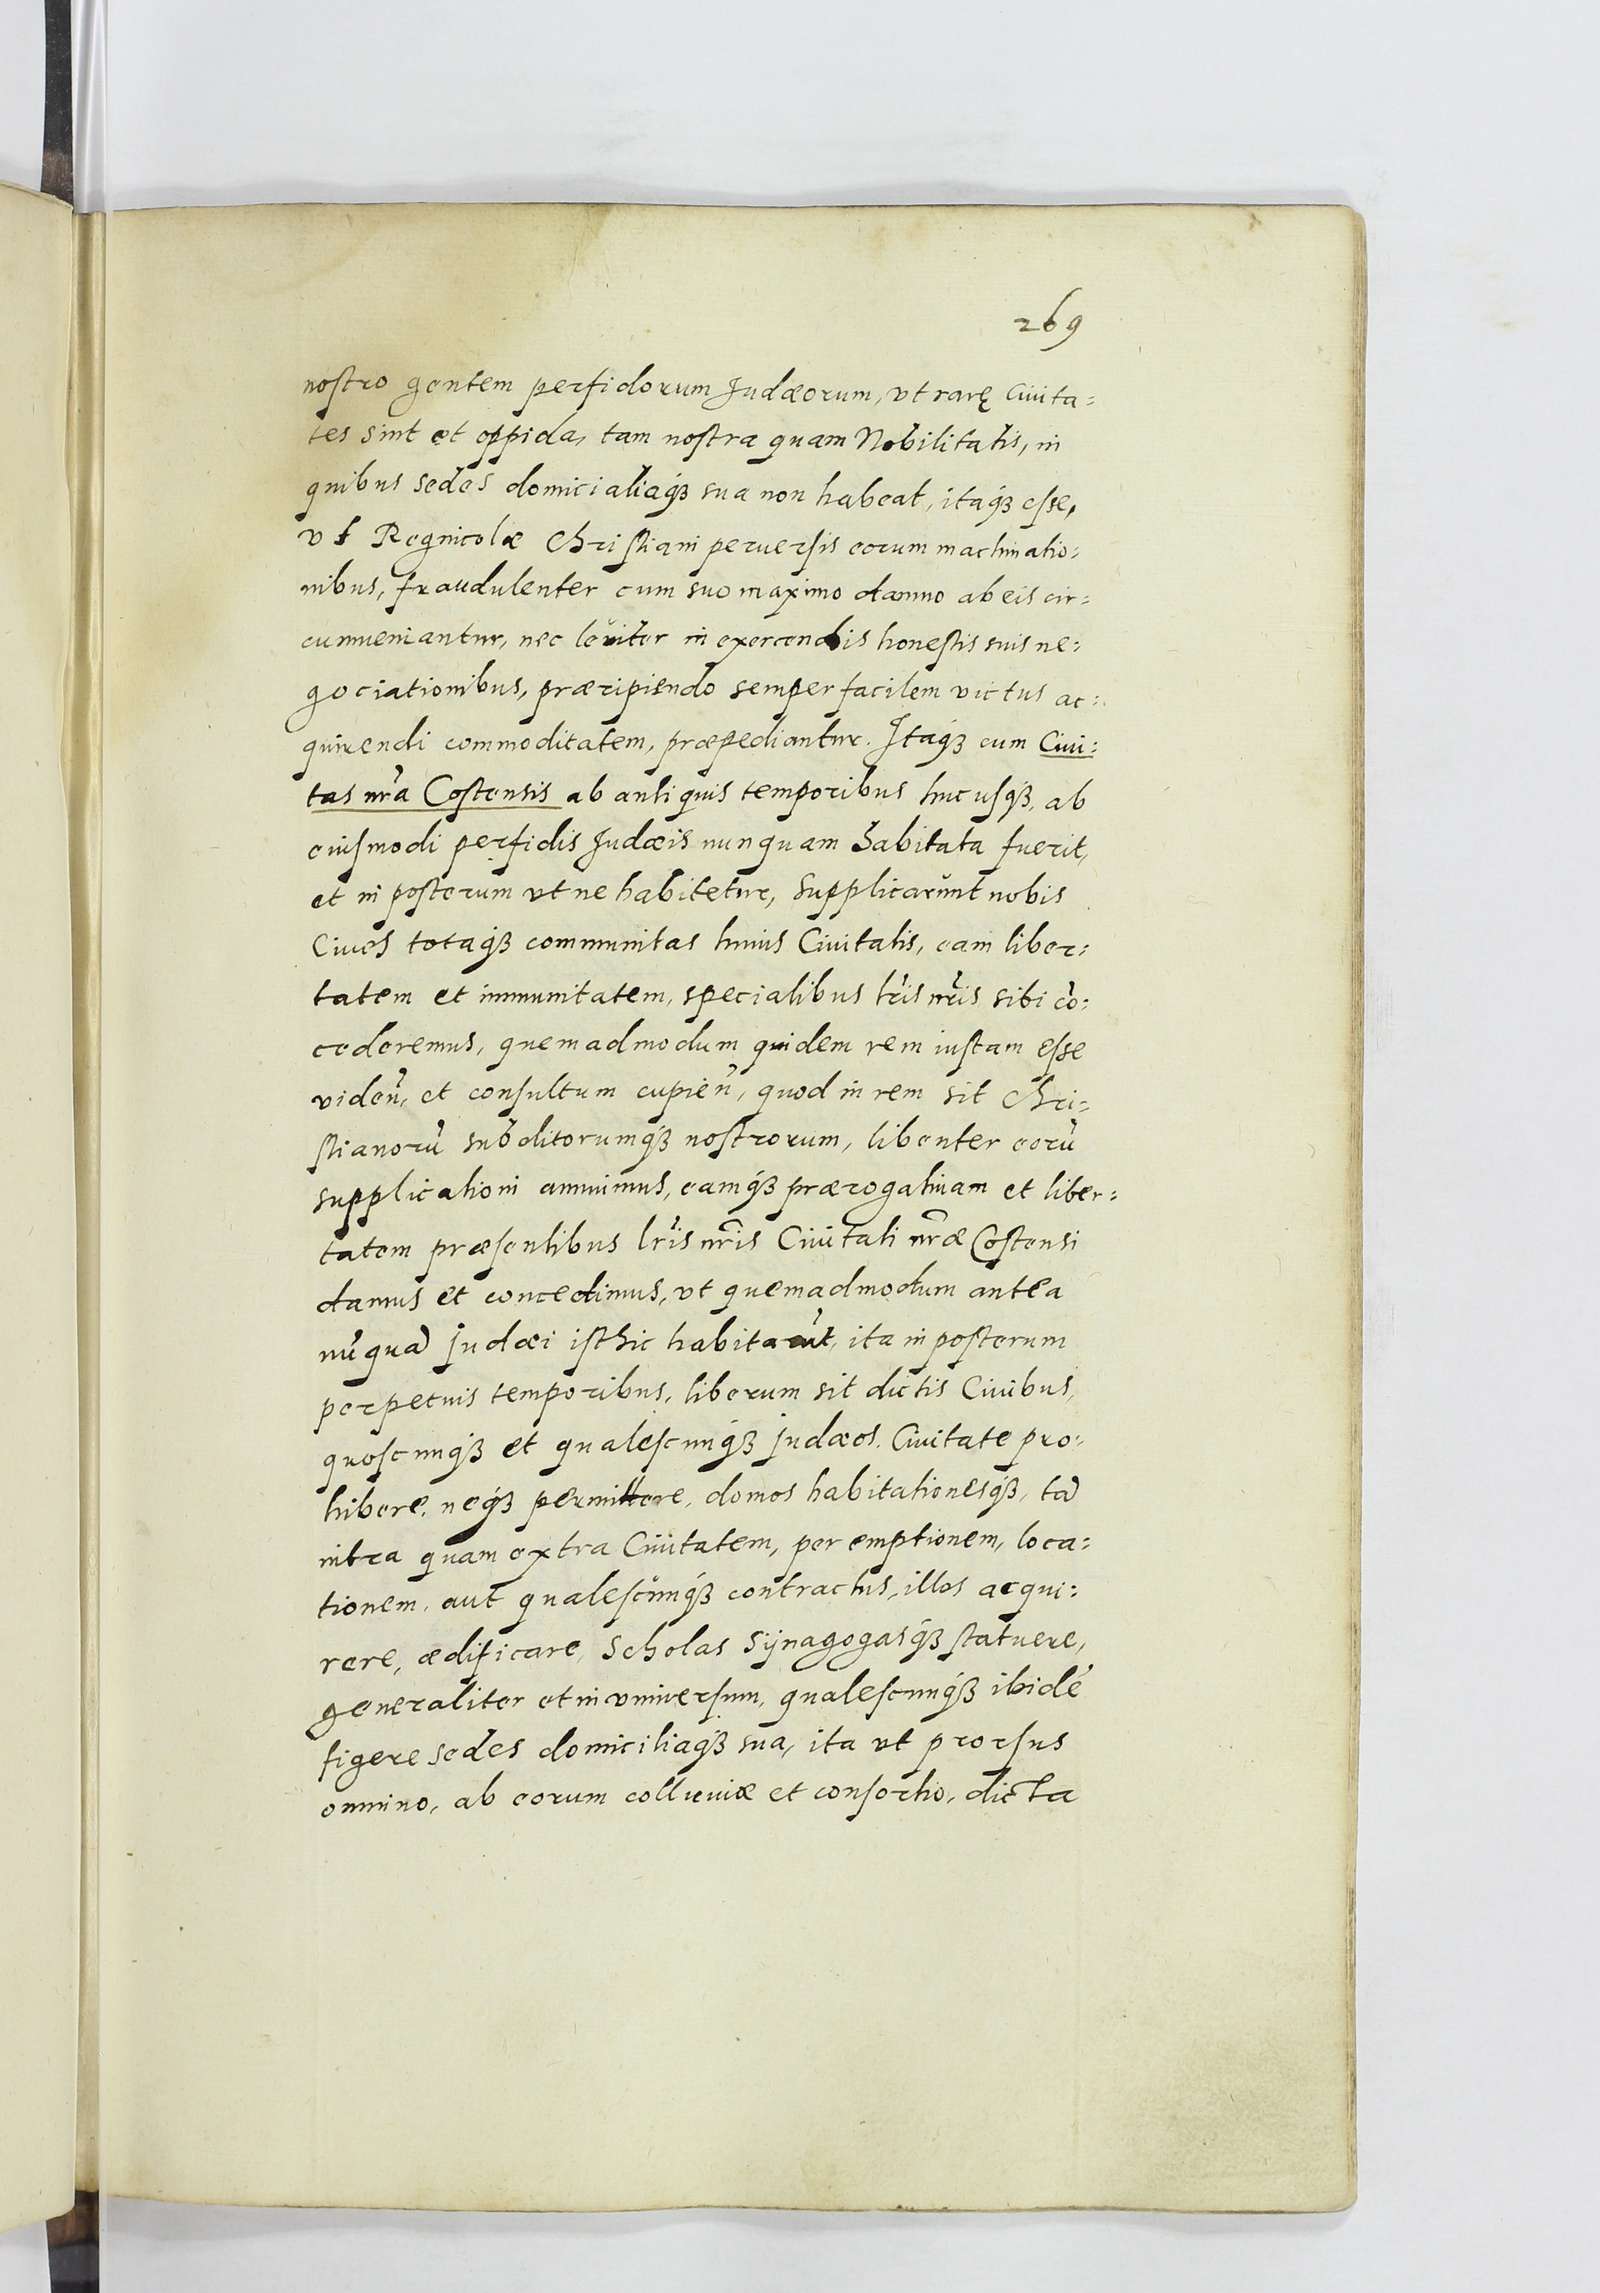 269
nostro gentem perfidorum Judæorum, vt rarę Ciuita=
tes sint et oppida, tam nostra quam Nobilitatis, in
quibus sedes domicialiaqꝫ sua non habeat, itaqꝫ esse,
vt Regnicolæ Christiani peruersis eorum machinatio=
nibus, fraudulenter cum suo maximo damno ab eis cir=
cumueniantur, nec leuiter in exercendis honestis suis ne=
gociationibus, præripiendo semper facilem victus ac=
quirendi commoditatem, præpediantur. Itaqꝫ cum Ciui=
tas nrã Costensis ab antiquis temporibus hucusqꝫ, ab
eiusmodi perfidis Judæis nunquam habitata fuerit,
et in posterum vt ne habitetur, supplicarunt nobis
Ciues totaqꝫ communitas huius Ciuitatis, eam liber=
tatem et immunitatem, specialibus lr̃is nr̃is sibi cõ=
cederemus, quemadmodum quidem rem iustam esse
videñ, et consultum cupieñ, quod in rem sit Chri=
stianorũ subditorumqꝫ nostrorum, libenter eorũ
supplicationi annuimus, eamqꝫ prærogatiuam et liber=
tatem præsentibus lr̃is nr̃is Ciuitati nr̃æ Costensi
damus et concedimus, vt quemadmodum antea
nũquã Judæi isthic habitarũt, ita in posterum
perpetuis temporibus, liberum sit dictis Ciuibus,
quoscunqꝫ et qualescunqꝫ Judæos, Ciuitate pro=
hibere, neqꝫ permittere, domos habitationesqꝫ, tã
intra quam extra Ciuitatem, per emptionem, loca=
tionem, aut qualescunqꝫ contractus, illos acqui=
rere, ædificare, Scholas Synagogasqꝫ statuere,
generaliter et in vniuersum, qualescunqꝫ ibidẽ
figere sedes domiciliaqꝫ sua, ita vt prorsus
omnino, ab eorum colluuiæ et consortio, dicta